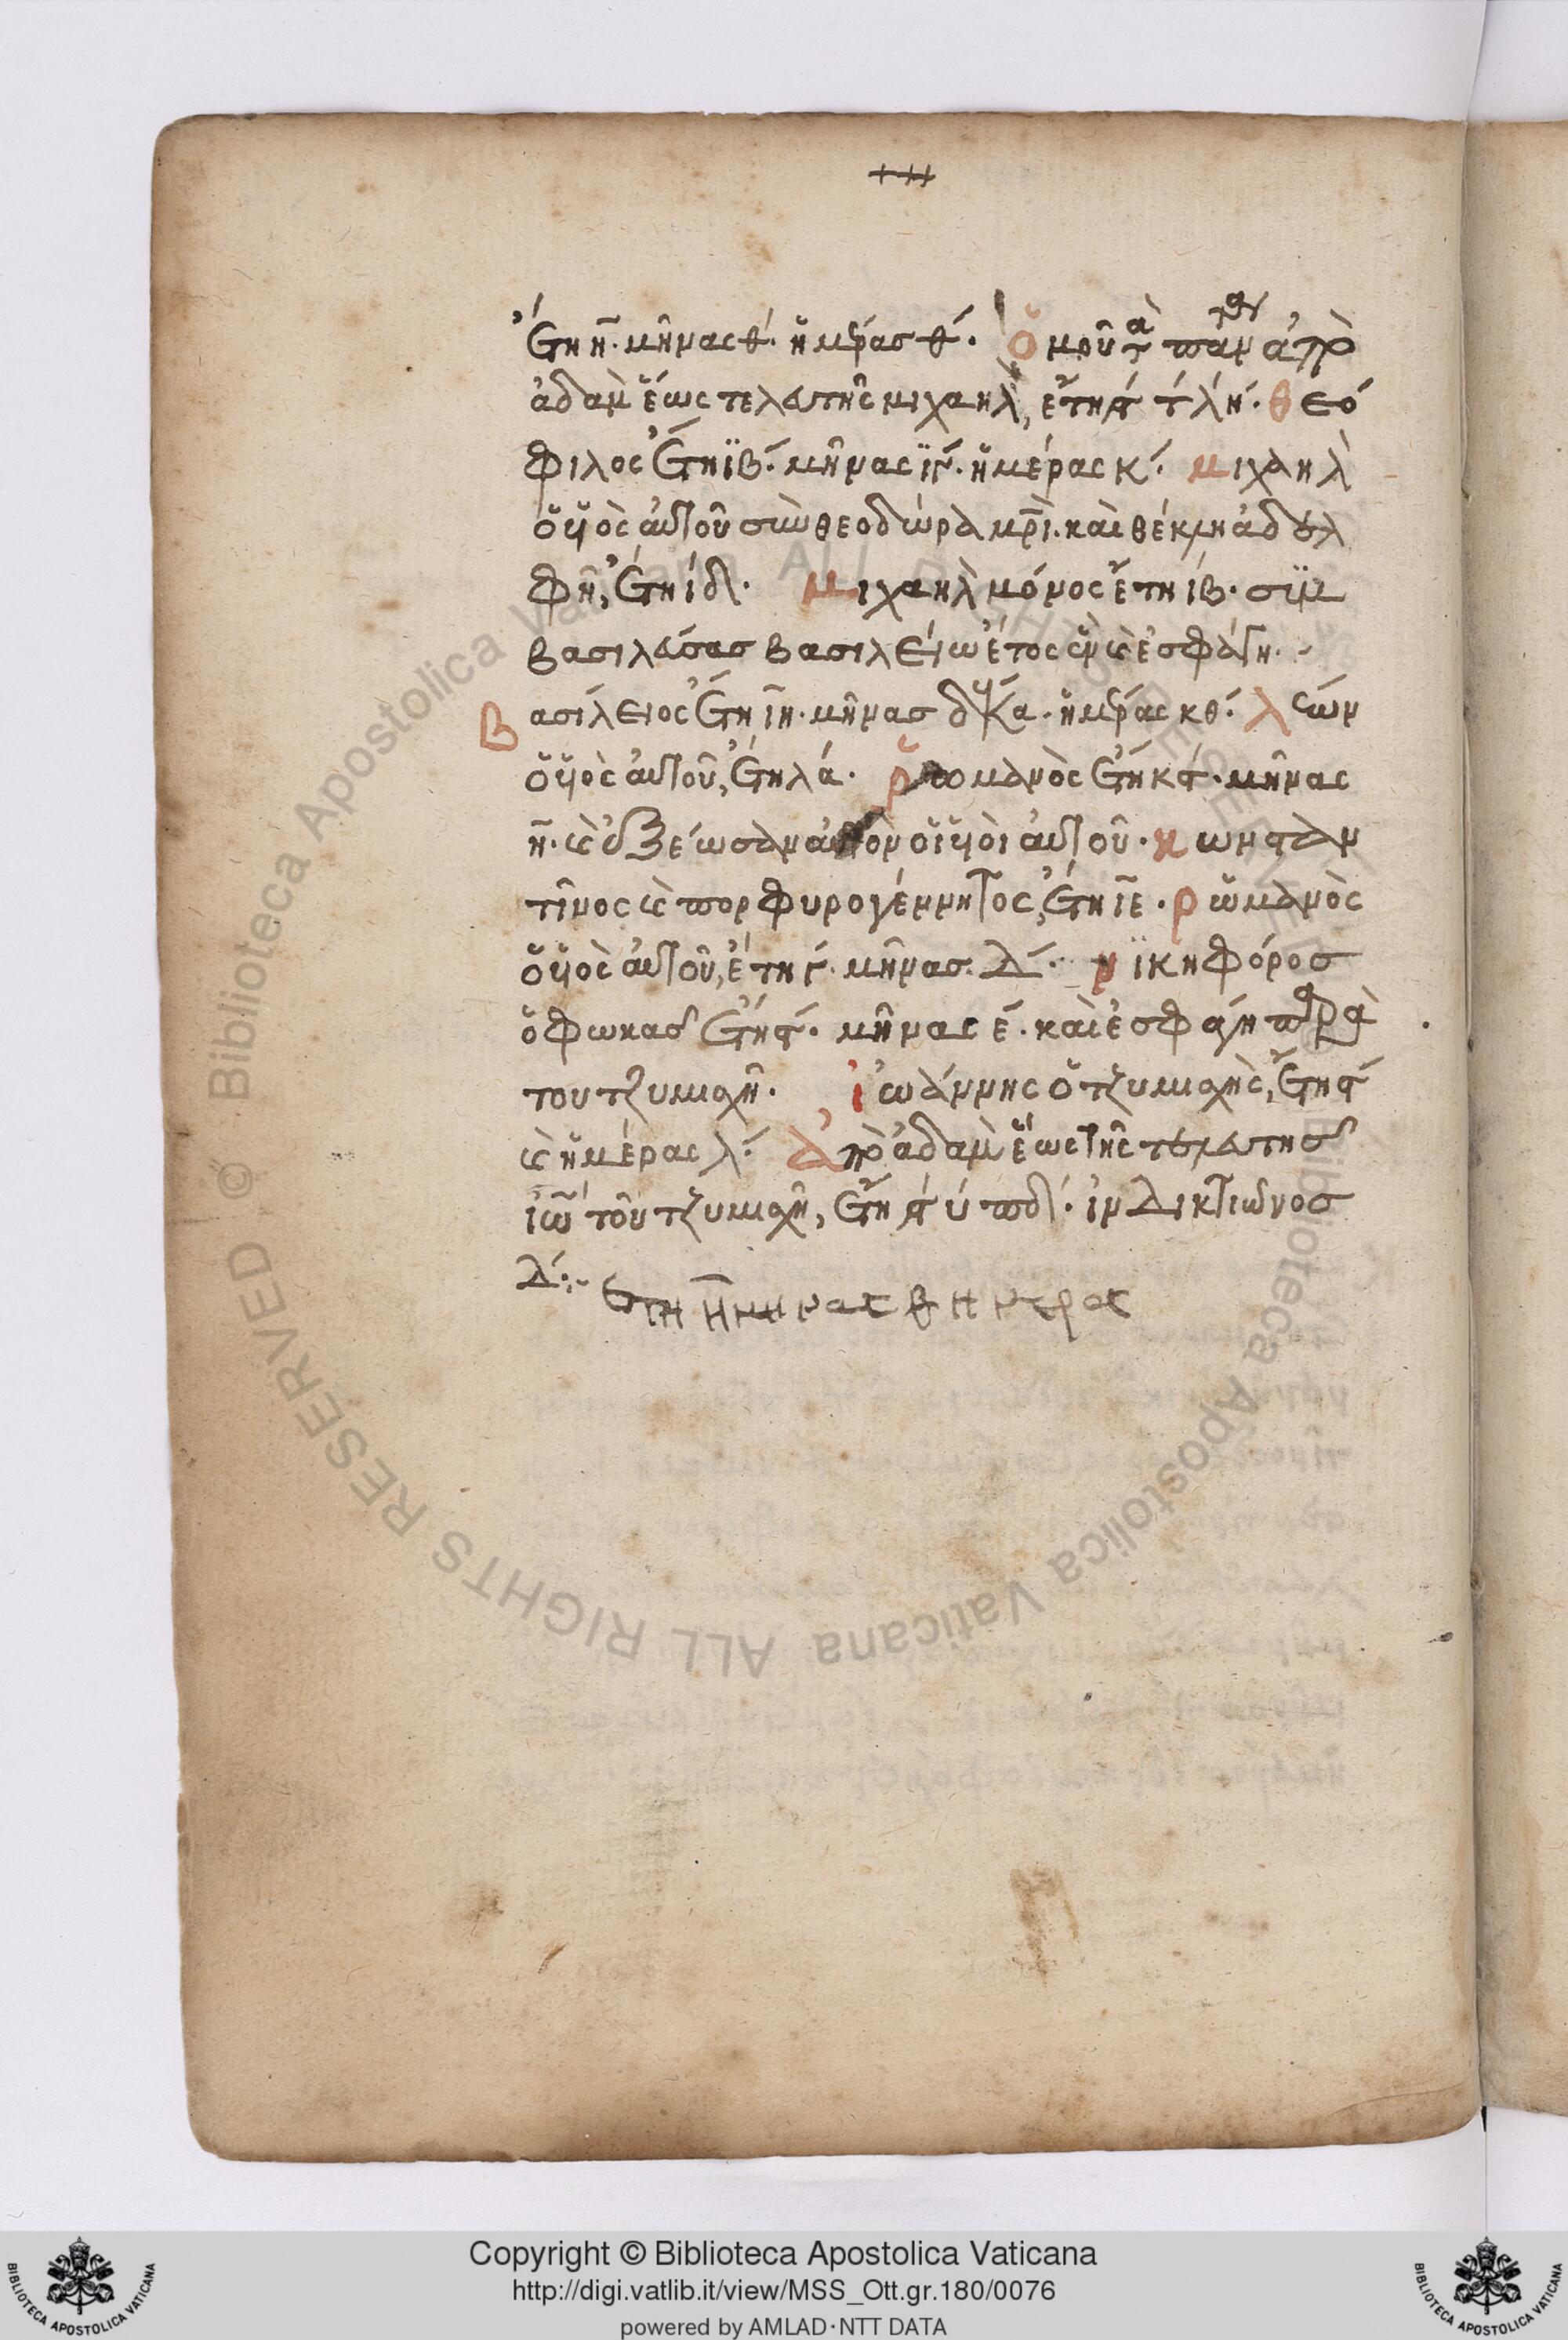 ἔτη η̄. μῆνας θ́. ἡμέρας θ́. ὁμοῦ τὰ πάντα ἀπὸ
ἀδὰμ ἕως τελευτῆς μιχαὴλ, ἔτη ϛ́τλή. θεό
φιλος ἔτη ϊβ́. μῆνας ϊγ́. ἡμέρας κ́. μιχαὴλ
ὁ υἱὸς αὐτοῦ σὺν θεοδώρα μρ̄ὶ. καὶ θέκλη ἀδελ
φῆ, ἔτη ίδ. μιχαὴλ μόνος ἔτη ίβ. σὺν
βασιλεύσας βασιλείω ἔτος ἓν καὶ ἐσφάγη.
Βασίλειος ἔτη ῑη. μῆνας δέκα. ἡμέρας κθ́. λέων
ὁ υἱὸς αὐτοῦ, ἔτη λά. ῥωμανὸς ἔτη κϛ́. μῆνας
η̄. καὶ ἐξέωσαν αὐτὸν οἱ υἱοὶ αὐτοῦ. κωνσταν
τῖνος ὁ πορφυρογέννητος, ἔτη ῑε. ρωμανὸς
ὁ υἱὸς αὐτοῦ, ἔτη γ́. μῆνας. δ́. νϊκηφόρος
ὁ φωκας ἔτη ϛ́. μῆνας έ. καὶ ἐσφάγη παρὰ
του τζυμισχῆ. ἰωάννης ὁ τζυμισχὴς, ἔτη ϛ́
καὶ ἡμέρας λ́. ἀπὸ ἀδὰμ ἕως τῆς τελευτης
ἰω̄ τοῦ τζυμισχῆ, ἔτη ϛ́υπδ́. ἰνδικτιῶνος
δ́:-
ετη η̄ μηνας β ημερας
Copyright © Biblioteca Apostolica Vaticana
http://digi.vatlib.it/view/MSS_Ott.gr.180/0076
powered by AMLAD·NTT DATA
BIBLIOTECA APOSTOLICA VATICANA
BIBLIOTECA APOSTOLICA VATICANA
Biblioteca Apostolica Vaticana ALL RIGHTS RESERVED ©